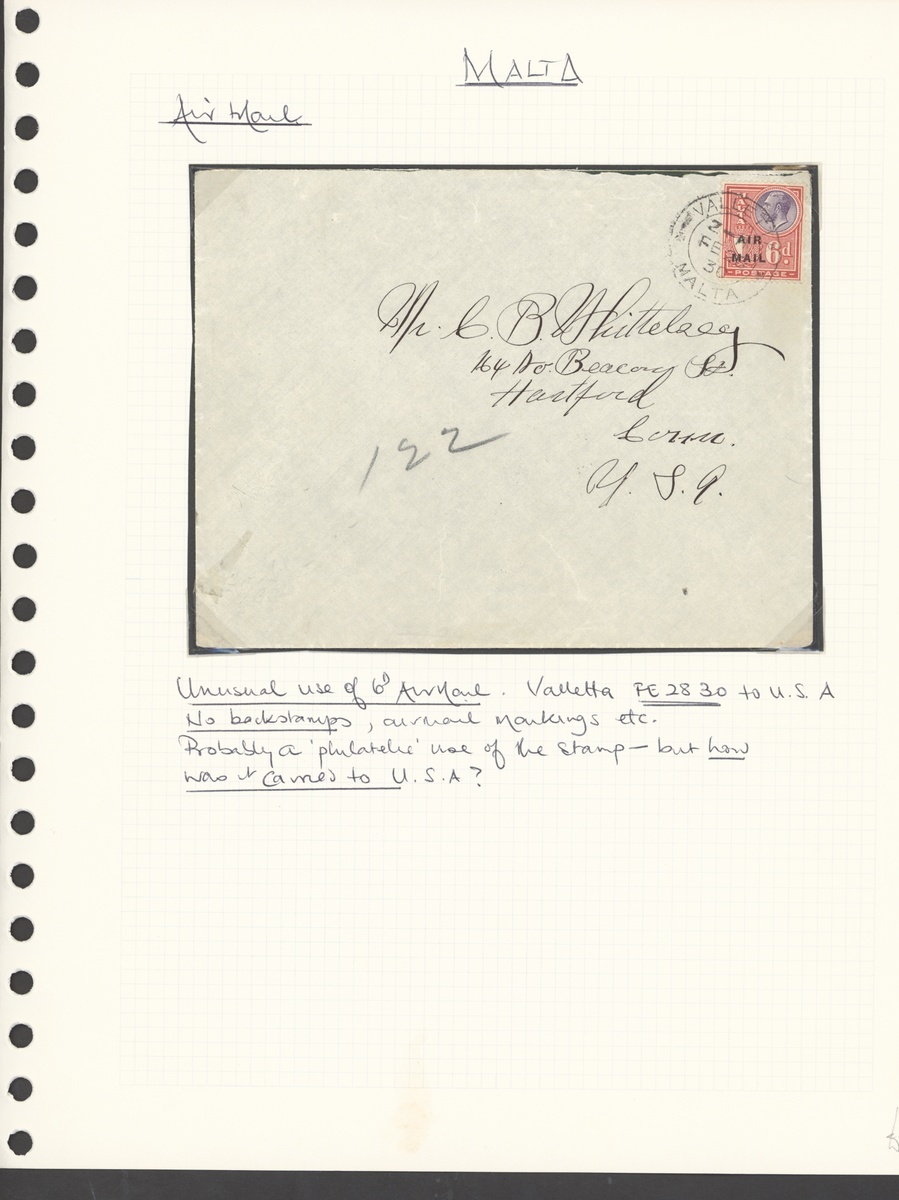 MALTA
Air Mail
VALLE
AIR
MAIL 6d
POSTAGE
MALTA
Mr. C. B. Whittelsey
164 No. Beacon St.
Hartford
Conn.
U. S. A.
122
Unusual use of 6d AirMail. Valletta FE 28 30 to U.S.A
No backstamps, airmail markings etc.
Probably a 'philatelic' use of the stamp - but how
was it carried to U.S.A?